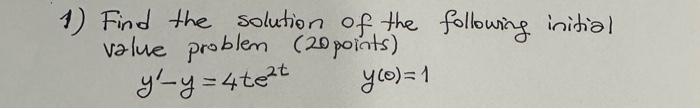 1) Find the solution of the following initial
value problem (20 points)
y'-y = 4te^2t y(0)=1